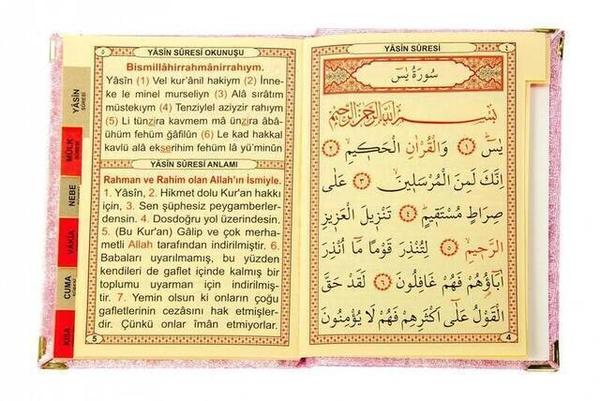 YÂSİN SÛRESİ
٤
سُورَةُ يٰسٓ
بِسْمِ اللّٰهِ الرَّحْمٰنِ الرَّح۪يمِ
يٰسٓ ﴿١﴾ وَالْقُرْاٰنِ الْحَك۪يمِ ﴿٢﴾
اِنَّكَ لَمِنَ الْمُرْسَل۪ينَ ﴿٣﴾ عَلٰى
صِرَاطٍ مُسْتَق۪يمٍ ﴿٤﴾ تَنْز۪يلَ الْعَز۪يزِ
الرَّح۪يمِ ﴿٥﴾ لِتُنْذِرَ قَوْمًا مَٓا اُنْذِرَ
اٰبَٓاؤُ۬هُمْ فَهُمْ غَافِلُونَ ﴿٦﴾ لَقَدْ حَقَّ
الْقَوْلُ عَلٰٓى اَكْثَرِهِمْ فَهُمْ لَا يُؤْمِنُونَ
4
٥
YÂSİN SÛRESİ OKUNUŞU
Bismillâhirrahmânirrahıym.
Yâsîn (1) Vel kur'ânil hakiym (2) İnne-
ke le minel murseliyn (3) Alâ sırâtım
müstekıym (4) Tenziylel aziyzir rahıym
(5) Li tünzira kavmem mâ ünzira âbâ-
ühüm fehüm ğâfilûn (6) Le kad hakkal
kavlü alâ ekserihim fehüm lâ yü'minûn
YÂSİN SÛRESİ ANLAMI
Rahman ve Rahim olan Allah'ın İsmiyle.
1. Yâsîn, 2. Hikmet dolu Kur'an hakkı
için, 3. Sen şüphesiz peygamberler-
densin. 4. Dosdoğru yol üzerindesin.
5. (Bu Kur'an) Gâlip ve çok merha-
metli Allah tarafından indirilmiştir. 6.
Babaları uyarılmamış, bu yüzden
kendileri de gaflet içinde kalmış bir
toplumu uyarman için indirilmiş-
tir. 7. Yemin olsun ki onların çoğu
gafletlerinin cezâsını hak etmişler-
dir. Çünkü onlar îmân etmiyorlar.
5
YÂSİN
SÛRESİ
MÜLK
SÛRESİ
NEBE
VÂKIA
CUMA
SÛRESİ
KISA